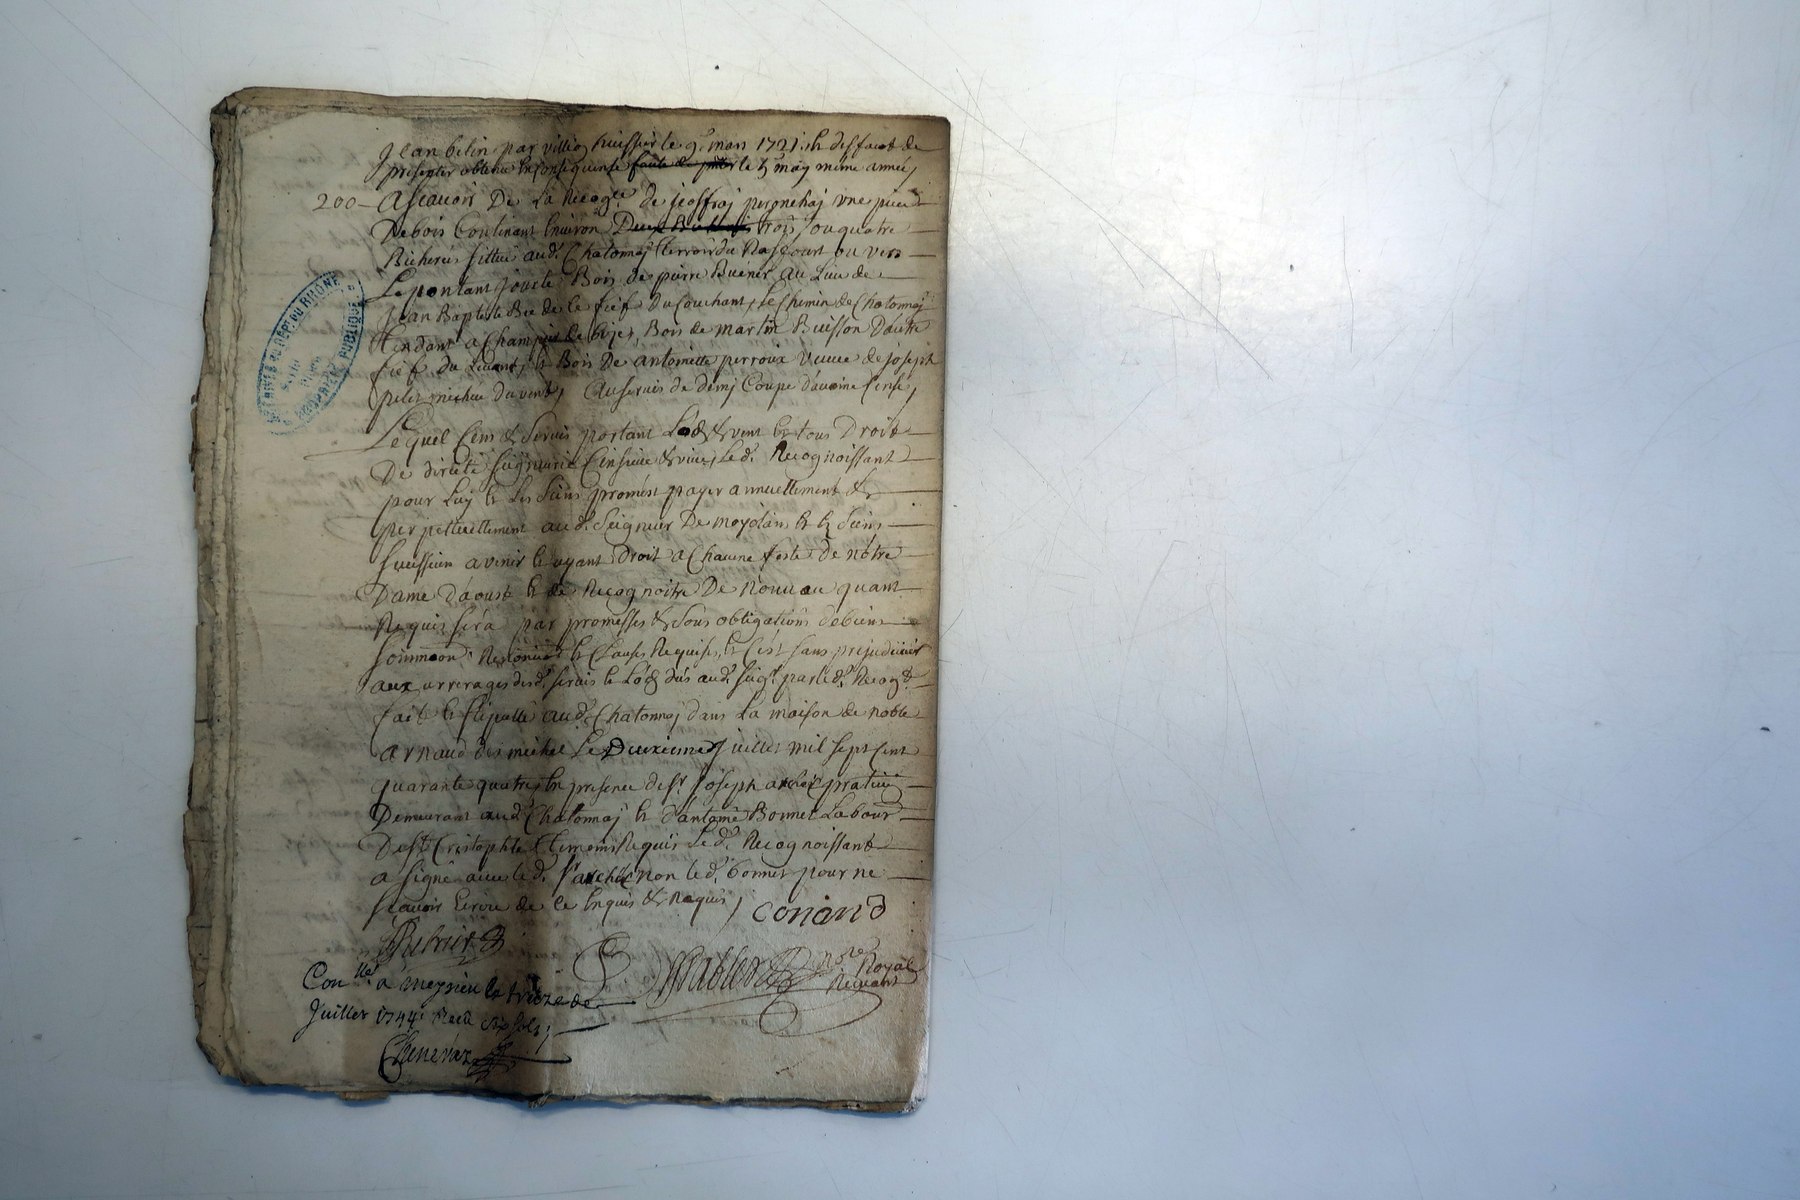 Jean belin par villio huissier le 9e mars 1721 et deffaut de
presenter obtenu en consequence le 5 may même année,
200 - Ascavoir De La Recog.ce de joffroj une piece
De bois Contenant Environ trois ou quatre
Bicherées sittué aud. Chatonnaj terroir du ou vers
Le jouxte Bois de pierre Au Lieu de
Jean Baptiste de le fief du Couchant, le Chemin de Chatonnaj
tendant a Champier de bize, Bois de martin Buisson d'autre
fief du Levant, le Bois De antoinette perroux veuve de joseph
petit michau du vent, Au servis de demj Coupe davoine Cense,
Lequel Cens & Servis portant Lods & vent et tous Droit
De directe seigneurie Censive & vive, Led. Recognoissant
pour Luy et Les Siens promést payer annuellement &
perpetuellement aud. Seigneur De moydieu et les Siens
Successeurs a venir et ayant Droit a Chacune feste De nôtre
Dame d'aoust et de Recognoitre De Nouveau quant
Requis séra par promesses & sous obligations debiens
Renonciat. et Clauses Requises, et C'ést sans prejudicier
aux arrerages desd. servis et Lods dus aud. seigr. par led. Recogt.
fait et stipullé aud. Chatonnaj dans La maison de noble
arnaud des michel Le Deuxieme Juillet mil sept Cent
quarante quatre, En presence de Sr. Joseph praticien
Demeurant aud. Chatonnaj et d'antoine Bonnet Labour.
De St. Cristophle témoins Requis Led. Recognoissant
a signé avec led. Sr non led. bonnet pour ne
scavoir Ecrire de ce Enquis & Requis, conand
nore Royal
Recevant
Conllé a meyrieu le treize de
Juillet 1744. Receu six sols,
Chenevaz
ARCHIVES DU DÉPT DU RHÔNE
PUBLIQUE